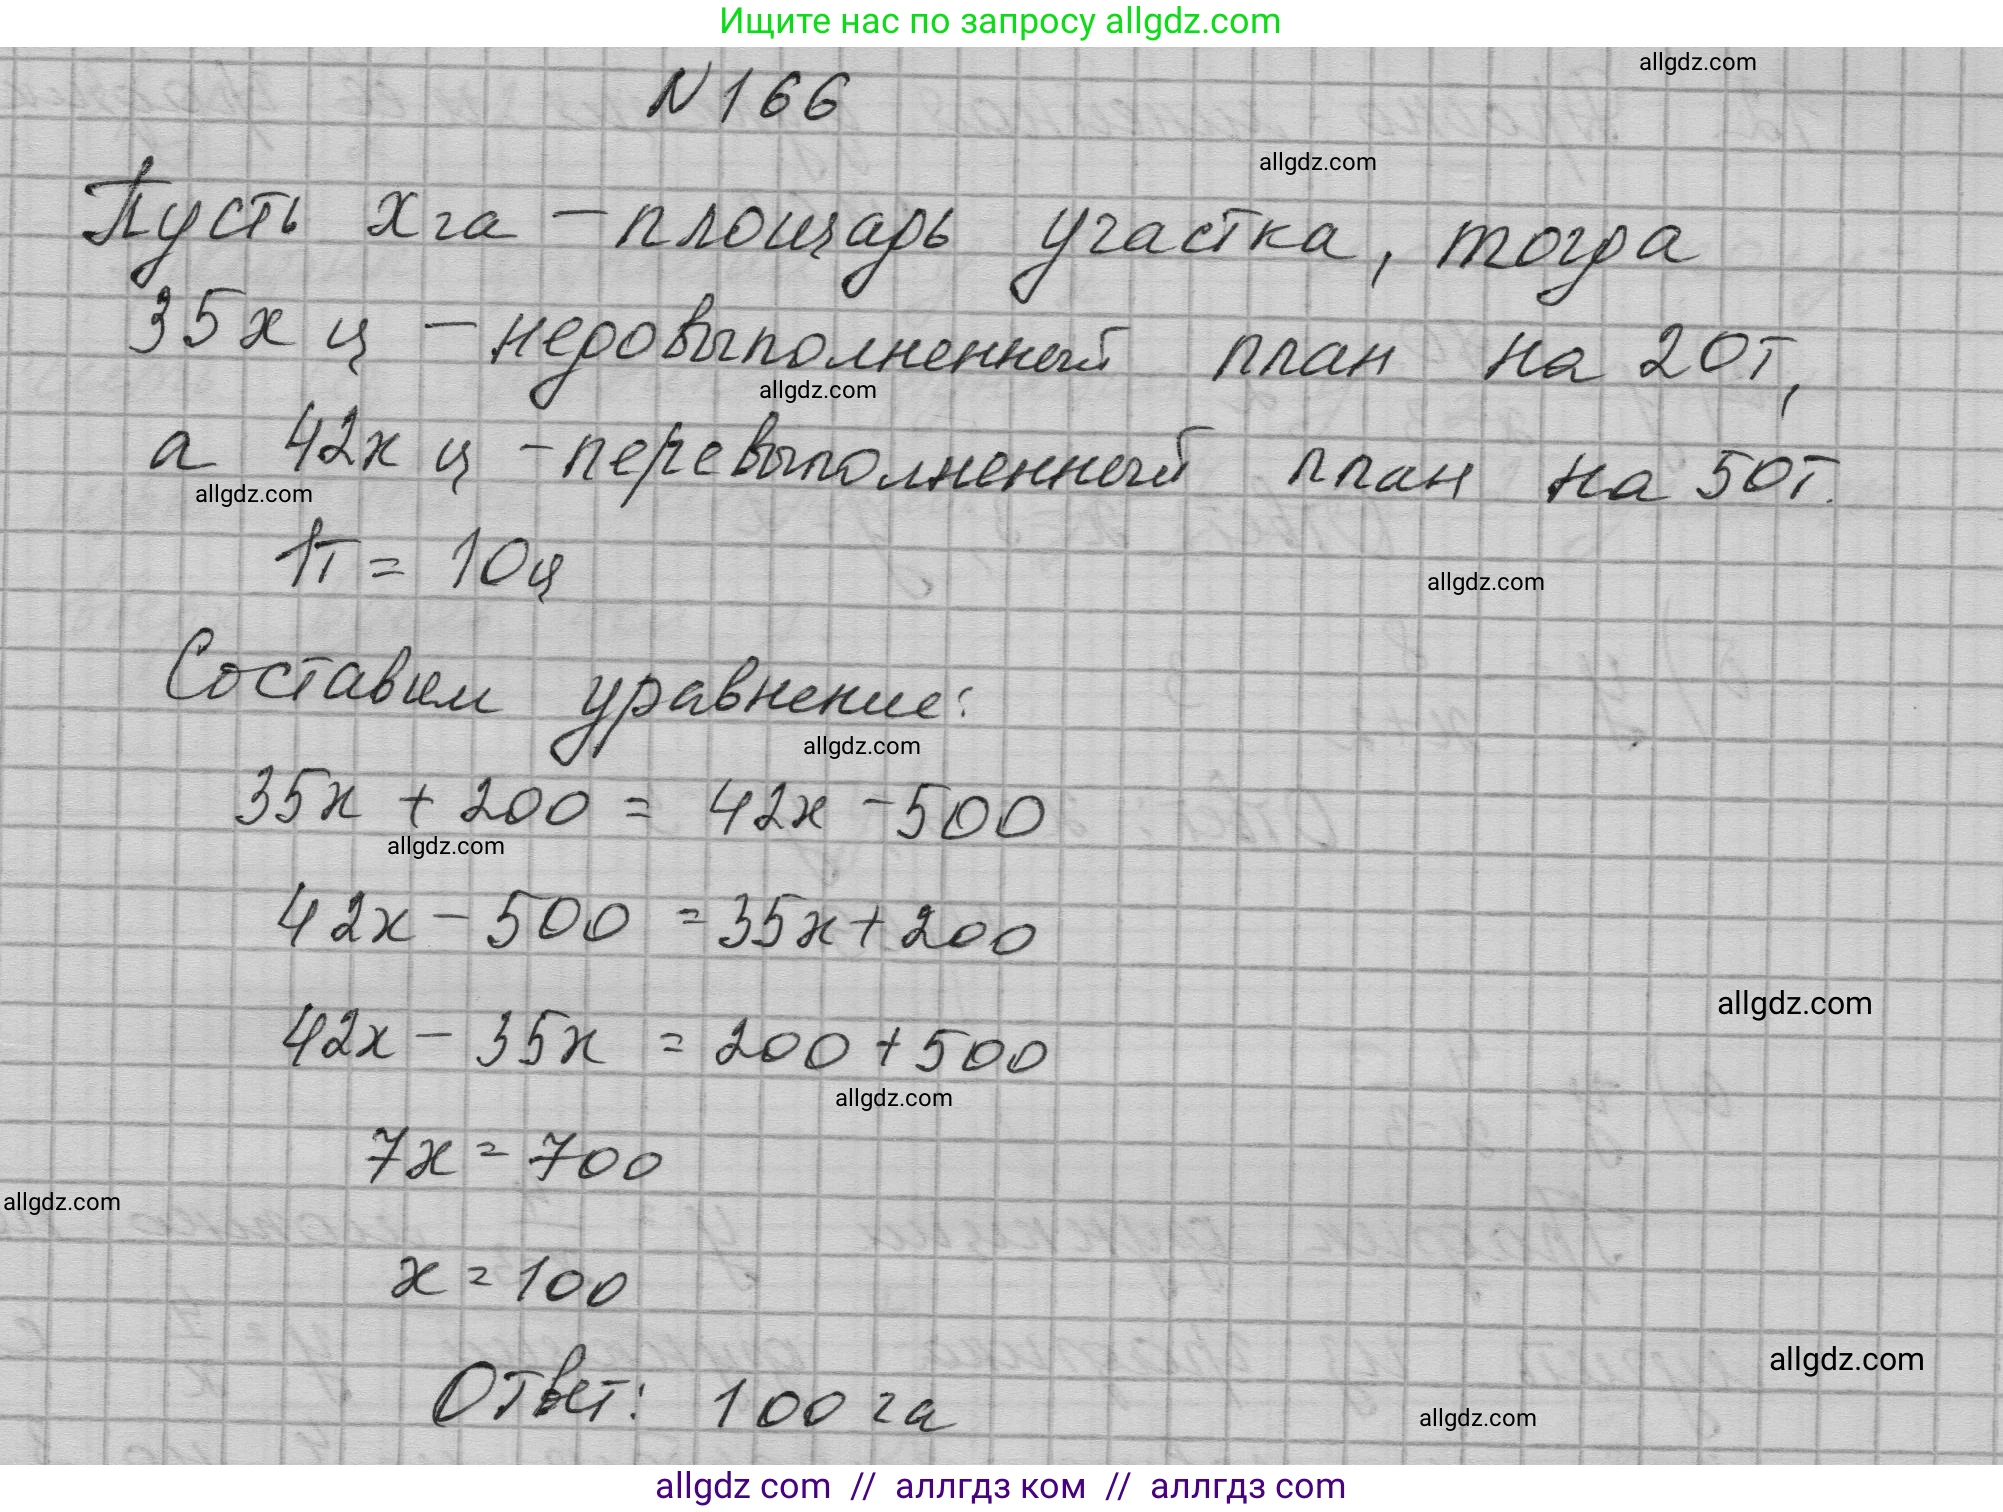 Ищите нас по запросу allgdz.com
allgdz.com
N 166
allgdz.com
Пусть х га – площадь участка, тогда
35х ц – недовыполненный план на 20т,
allgdz.com
а 42х ц – перевыполненный план на 50т.
allgdz.com
1т = 10ц
allgdz.com
Составим уравнение:
allgdz.com
35х + 200 = 42х – 500
allgdz.com
42х – 500 = 35х + 200
allgdz.com
42х – 35х = 200 + 500
allgdz.com
7х = 700
allgdz.com
х = 100
allgdz.com
Ответ: 100 га
allgdz.com
allgdz com // аллгдз ком // аллгдз com